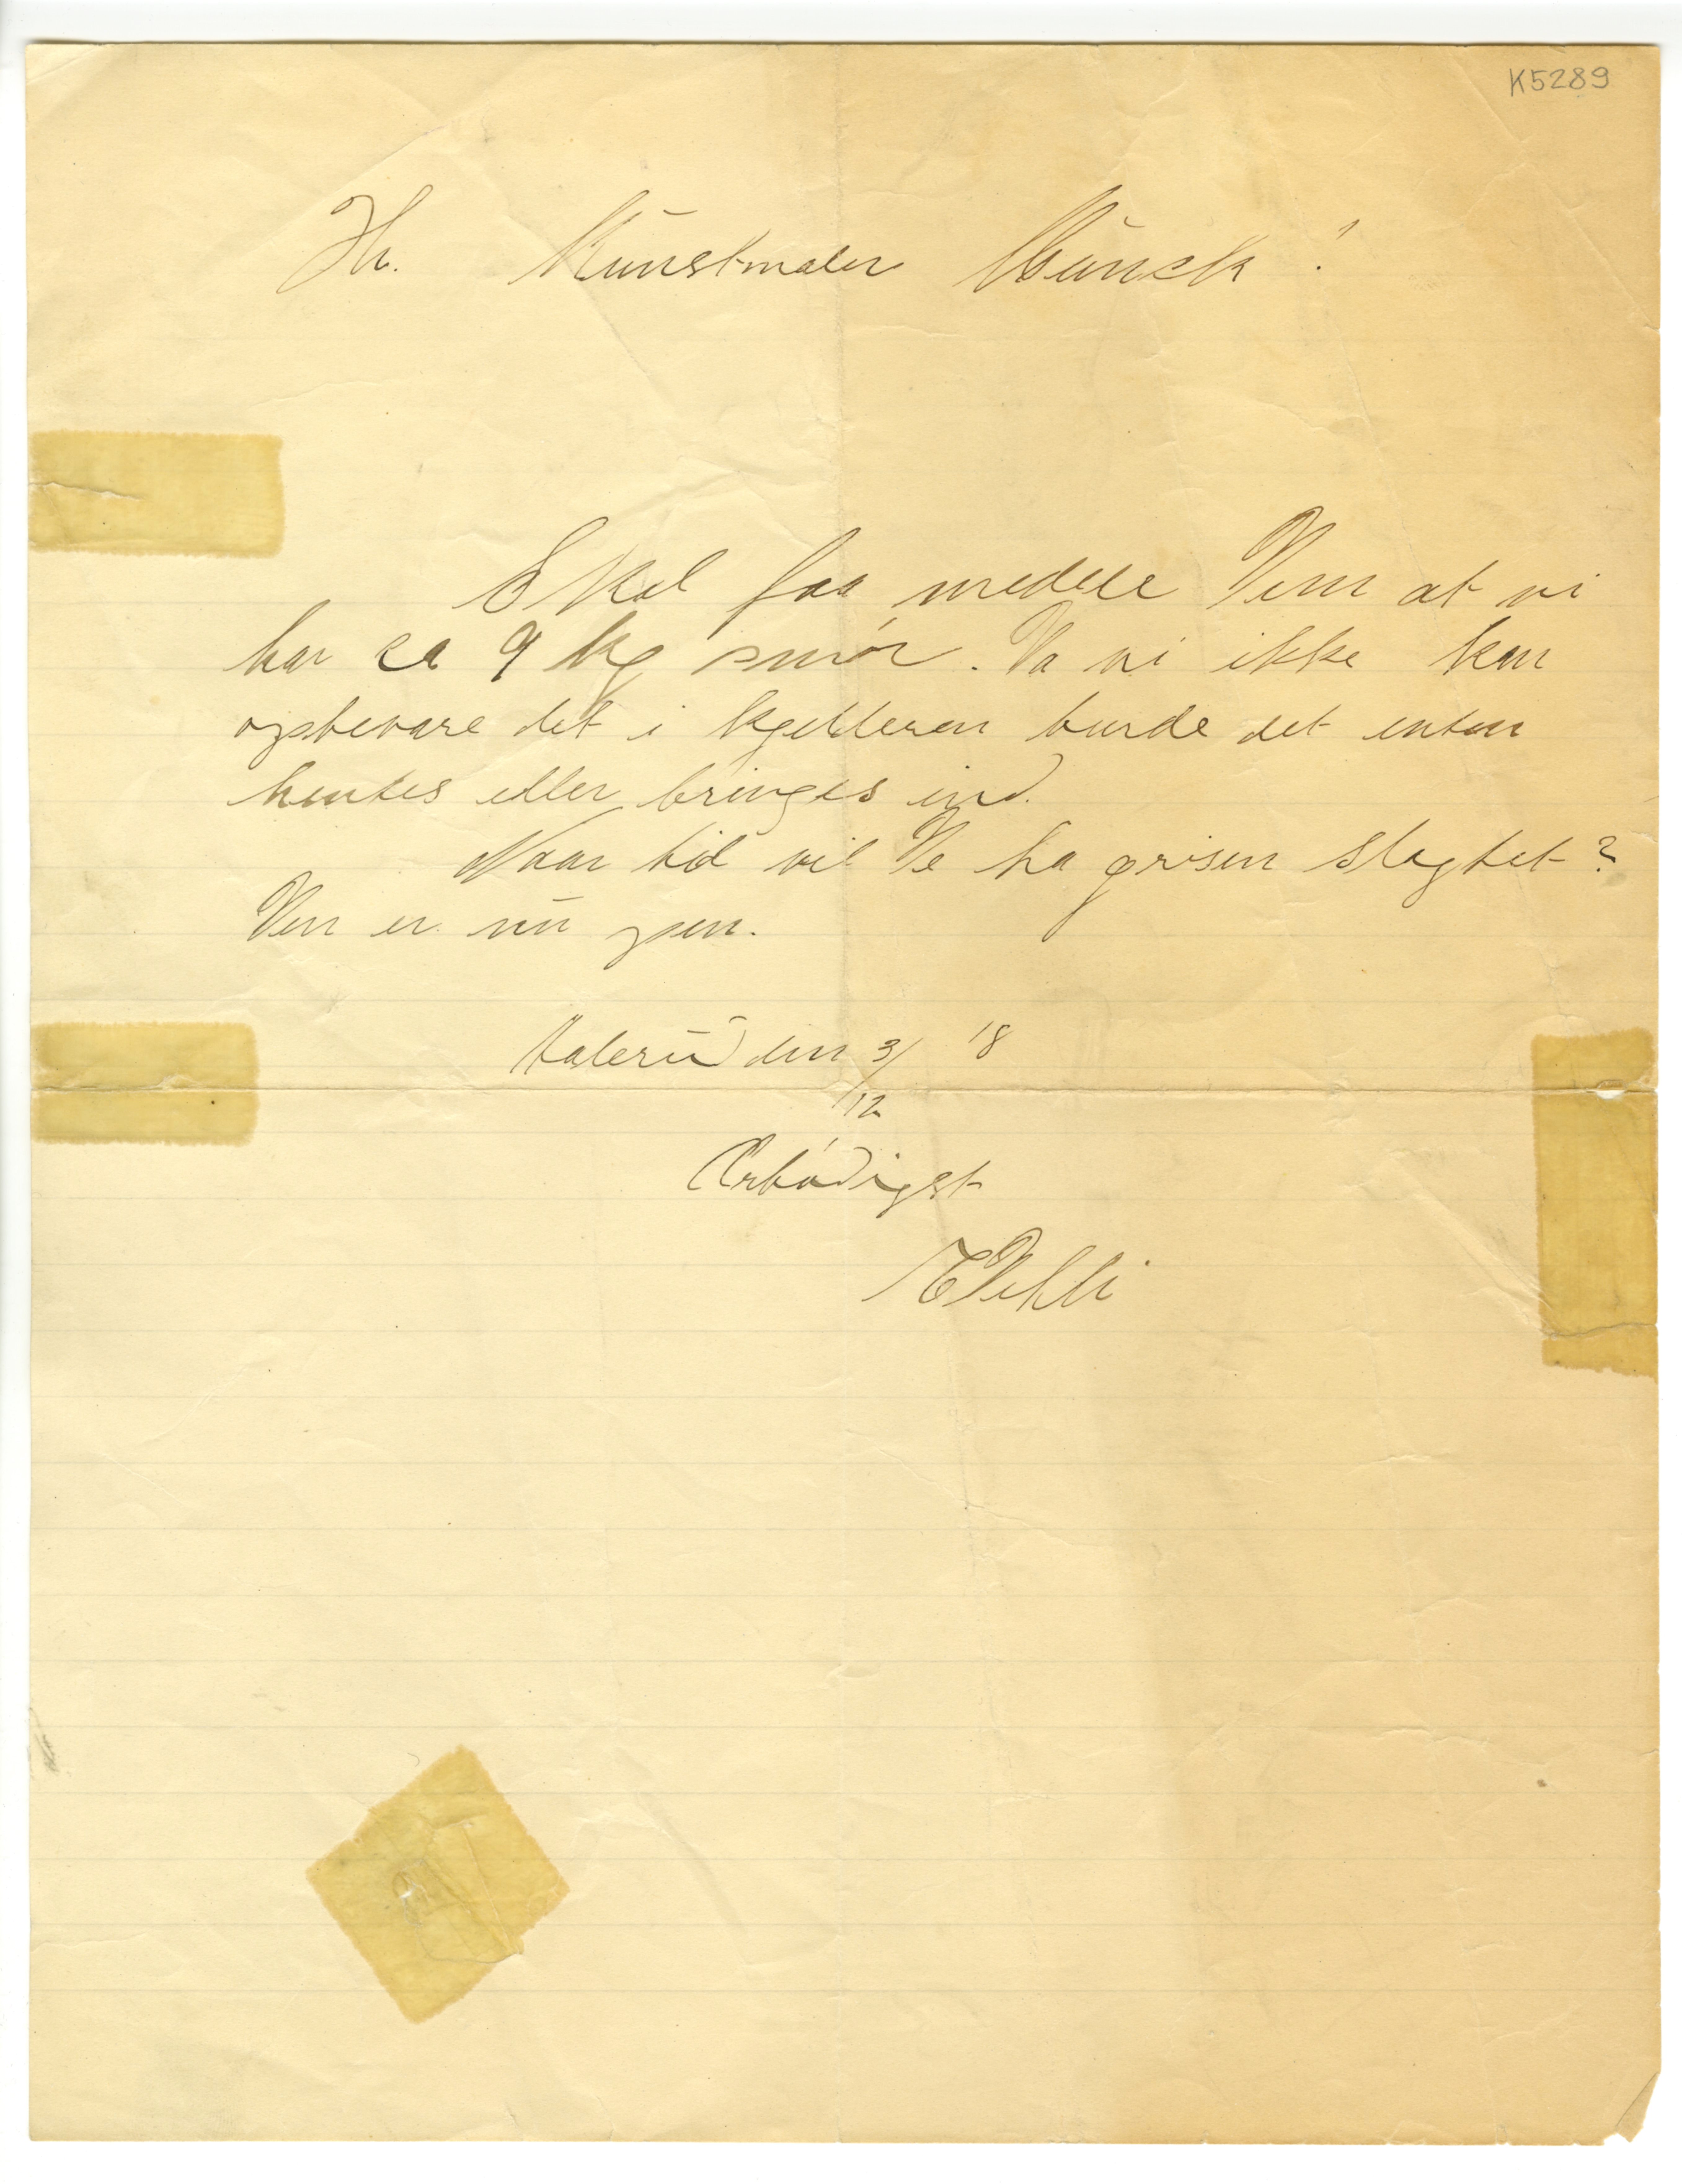 K5289
Hr. Kunstmaler Munch!
Skal faa meddele Dem at vi
har ca 9 kg smør. Da vi ikke kan
opbevare det i kjelderen burde det enten
hentes eller bringes ind.
Naar tid vil De ha grisen slagtet?
Den er nu pen.
den 3/12 18
Ærbødigst